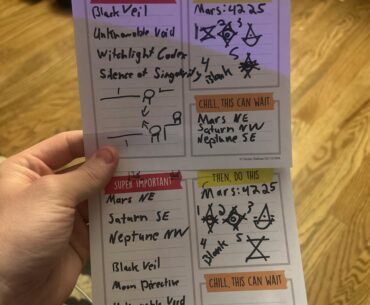 Black Veil
Unknowable Void
Witchlight Codex
Silence of
Mars: 42.25
1 2 3
4 5
Blank
CHILL, THIS CAN WAIT
Mars NE
Saturn NW
Neptune SE
SUPER IMPORTANT
Mars NE
Saturn SE
Neptune NW
Black Veil
Moon Directive
Void
THEN, DO THIS
Mars: 42.25
1 2 3
4 5
Blank
CHILL, THIS CAN WAIT